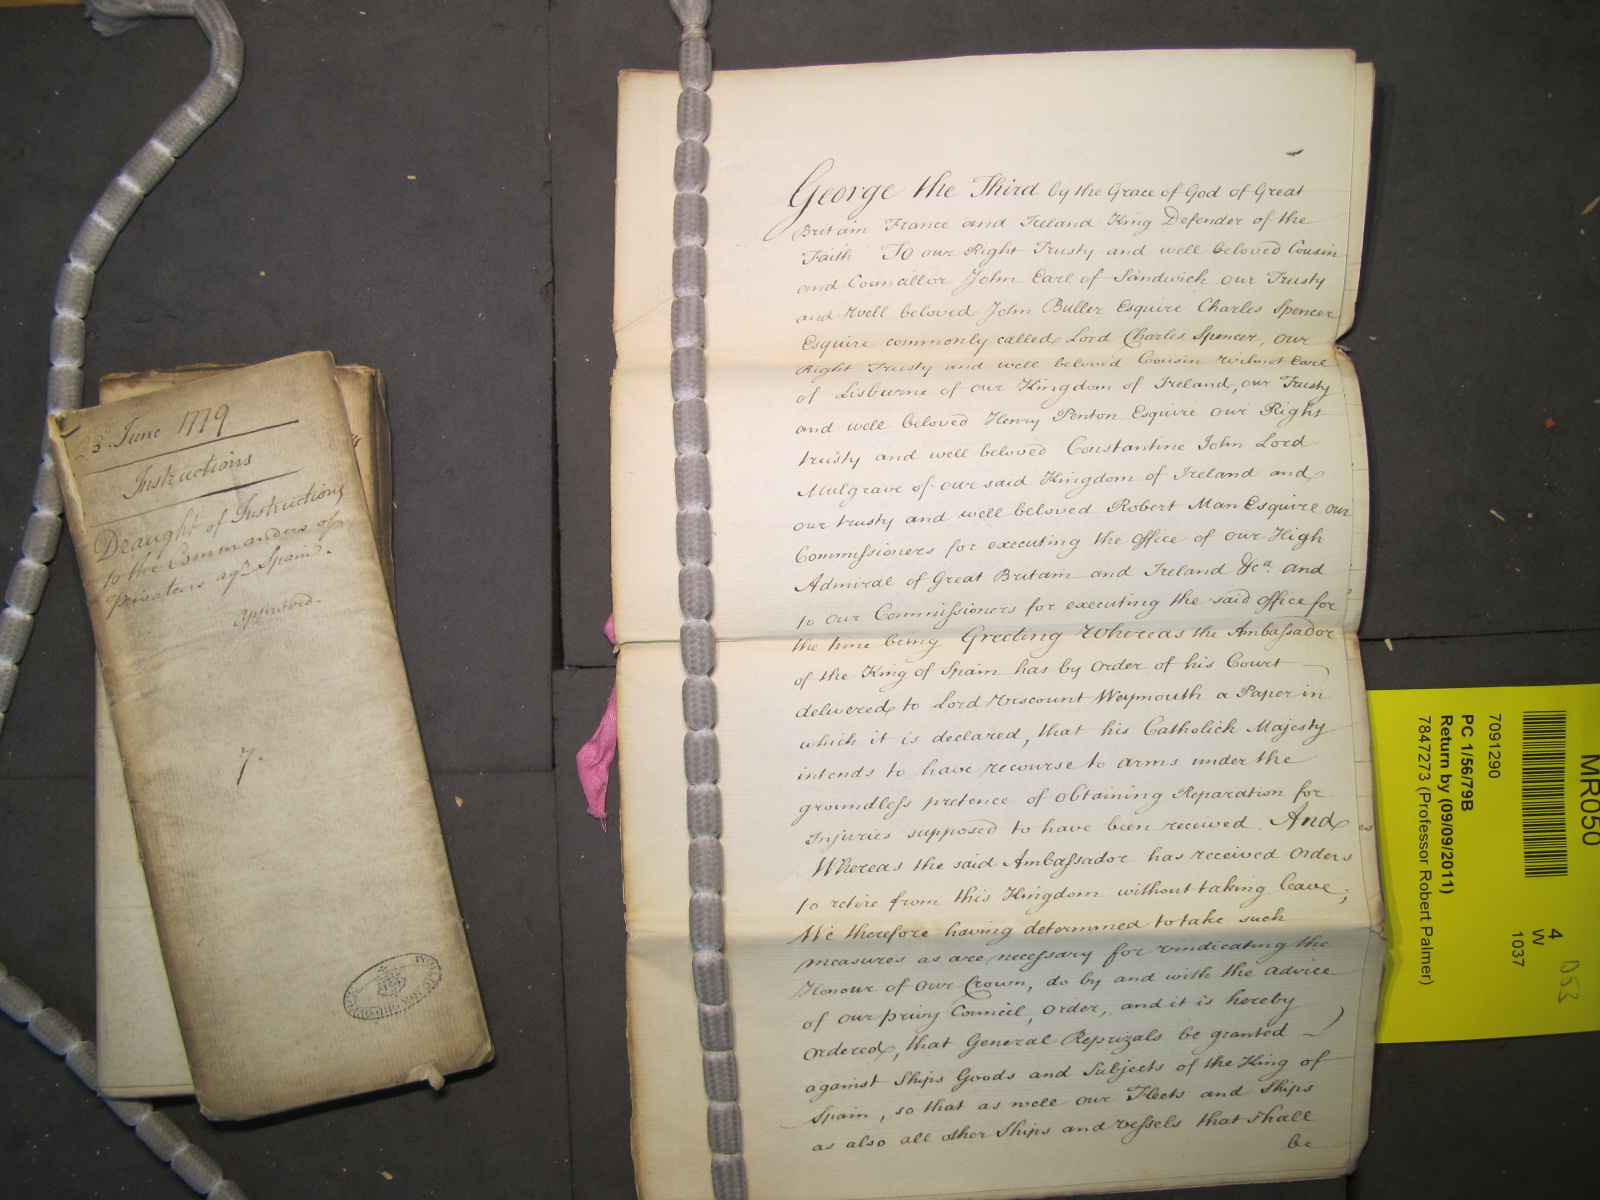 23d. June 1779
Instructions
Draught of Instructions
to the Commanders of
Privateers agt. Spain.
approved.
7.
George the Third by the Grace of God of Great
Britain France and Ireland King Defender of the
Faith To our Right Trusty and well beloved Cousin
and Councillor John Earl of Sandwich our Trusty
and Well beloved John Buller Esquire Charles Spencer
Esquire commonly called Lord Charles Spencer, our
Right Trusty and well beloved Cousin Wilmot Earl
of Lisburne of our Kingdom of Ireland, our Trusty
and well beloved Henry Penton Esquire our Right
trusty and well beloved Constantine John Lord
Mulgrave of our said Kingdom of Ireland and
our trusty and well beloved Robert Man Esquire our
Commissioners for executing the Office of our High
Admiral of Great Britain and Ireland &ca. and
to our Commissioners for executing the said Office for
the time being Greeting Whereas the Ambassador
of the King of Spain has by Order of his Court
delivered to Lord Viscount Weymouth a Paper in
which it is declared, that his Catholick Majesty
intends to have recourse to arms under the
groundless pretence of obtaining Reparation for
Injuries supposed to have been received. And
Whereas the said Ambassador has received Orders
to retire from this Kingdom without taking leave;
We therefore having determined to take such
measures as are necessary for vindicating the
Honour of Our Crown, do by and with the advice
of our privy Council, order, and it is hereby
ordered, that General Reprizals be granted
against Ships Goods and Subjects of the King of
Spain, so that as well our Fleets and Ships
as also all other Ships and Vessels that shall
be
MR050
4
W
1037
D53
7091290
PC 1/56/79B
Return by (09/09/2011)
7847273 (Professor Robert Palmer)